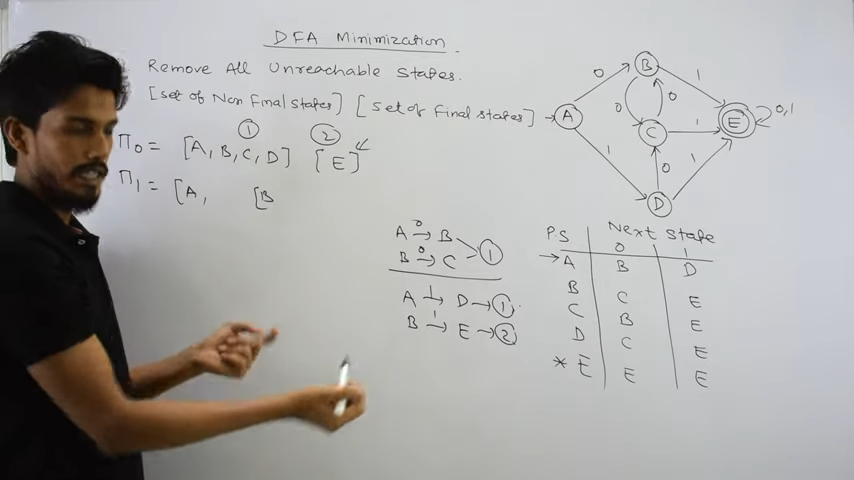 DFA Minimization.
Remove All Unreachable States.
[Set of Non Final States] [Set of Final states]
① ②
Π0 = [A, B, C, D] [E]
Π1 = [A, [B
A 0→ B
B 0→ C
①
A 1→ D → ①.
B 1→ E → ②
B
0 1
A 0 0 C 1 E 0,1
1 0 1
D
P.S Next State
0 1
→ A B D
B C E
C B E
D C E
* E E E